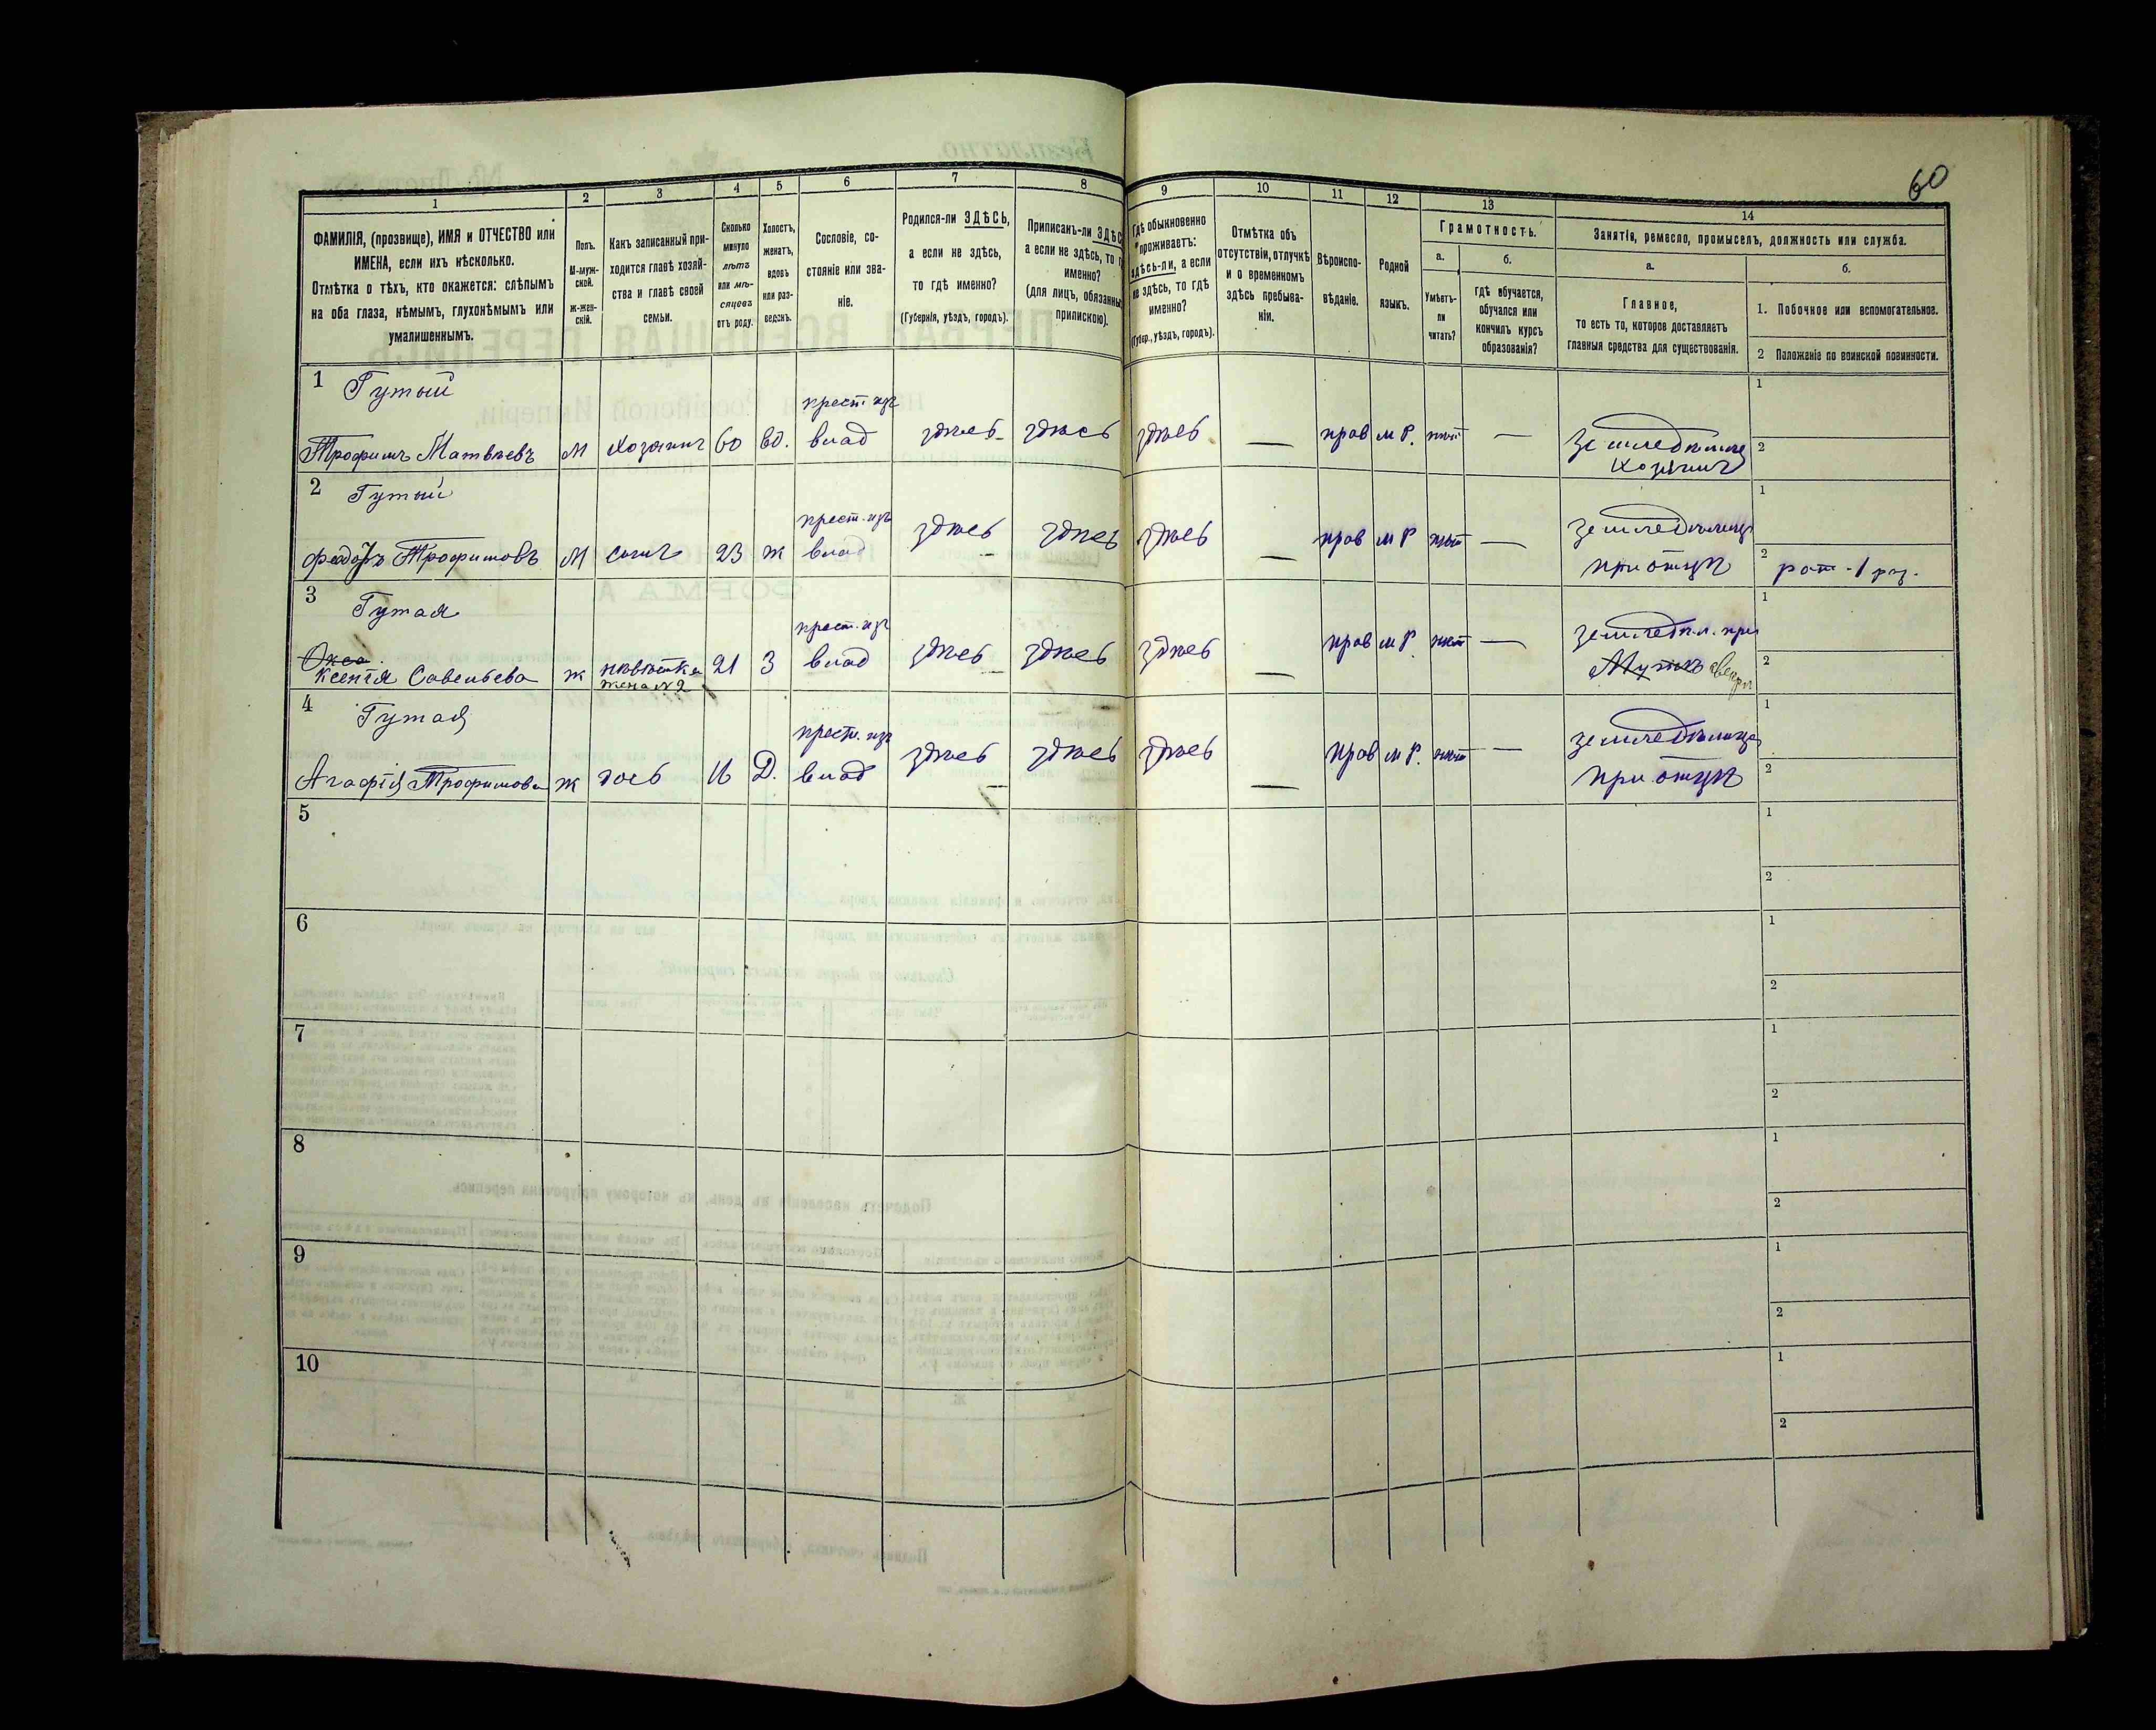 60
1
2
3
4
5
6
7
8
9
10
11
12
13
14
ФАМИЛІЯ, (прозвище), ИМЯ и ОТЧЕСТВО или
ИМЕНА, если ихъ нѣсколько.
Отмѣтка о тѣхъ, кто окажется: слѣпымъ
на оба глаза, нѣмымъ, глухонѣмымъ или
умалишеннымъ.
Полъ.
М-муж-
ской.
Ж-жен-
скій.
Какъ записанный при-
ходится главѣ хозяй-
ства и главѣ своей
семьи.
Сколько
минуло
лѣтъ
или мѣ-
сяцевъ
отъ роду.
Холостъ,
женатъ,
вдовъ
или раз-
веденъ.
Сословіе, со-
стояніе или зва-
ніе.
Родился-ли ЗДѢСЬ,
а если не здѣсь,
то гдѣ именно?
(Губернія, уѣздъ, городъ).
Приписанъ-ли ЗДѢС
а если не здѣсь, то г
именно?
(для лицъ, обязанны
припискою).
Гдѣ обыкновенно
проживаетъ:
здѣсь-ли, а если
не здѣсь, то гдѣ
именно?
(Губер., уѣздъ, городъ).
Отмѣтка объ
отсутствіи, отлучкѣ
и о временномъ
здѣсь пребыва-
ніи.
Вѣроиспо-
вѣданіе.
Родной
языкъ.
Грамотность.
а.
Умѣетъ-
ли
читать?
б.
гдѣ обучается,
обучался или
кончилъ курсъ
образованія?
Занятія, ремесло, промыселъ, должность или служба.
а.
Главное,
то есть то, которое доставляетъ
главныя средства для существованія.
б.
1. Побочное или вспомогательное.
2 Положеніе по воинской повинности.
1 Гутый
Трофимъ Матвѣевъ М Хозяинъ 60 вд. крест. изъ
влад здѣсь здѣсь здѣсь — прав м Р. нѣт — земледѣлец
хозяинъ
1
2
2 Гутый
Федоръ Трофимовъ М сынъ 23 ж крест. изъ
влад здѣсь здѣсь здѣсь — прав м Р нѣт — земледѣлец
при отцѣ
1
2 рат - 1 рз.
3 Гутая
Окса
Ксенія Савельева ж невѣстка 21 З крест. изъ
жена №2
влад здѣсь здѣсь здѣсь — прав м Р нѣт — земледѣл. при
Мужѣ свекр
1
2
4 Гутая
Агафія Трофимова ж дочь 16 Д. крест. изъ
влад здѣсь здѣсь здѣсь — прав м Р. нѣт — земледѣлица
при отцѣ
1
2
5
1
2
6
1
2
7
1
2
8
1
2
9
1
2
10
1
2